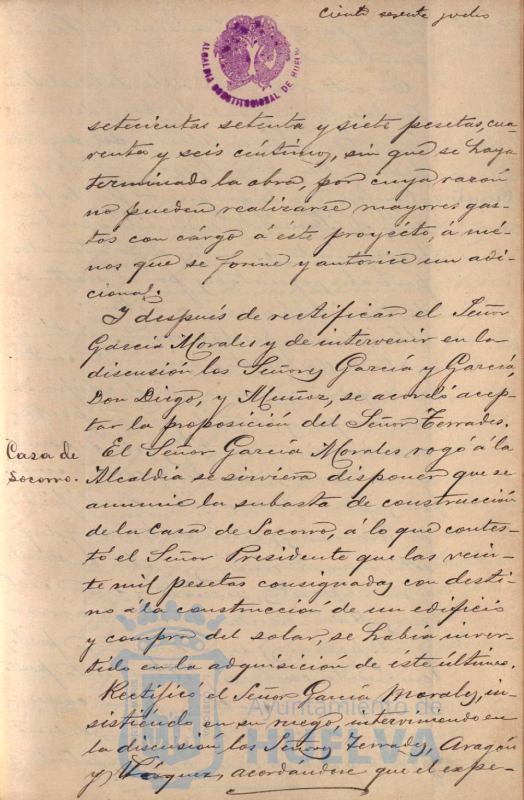 Ciento sesenta y ocho
ALCALDIA CONSTITUCIONAL DE HUELVA
setecientas setenta y siete pesetas, cua-
renta y seis céntimos, sin que se haya
terminado la obra, por cuya razón
no pueden realizarse mayores gas-
tos con cárgo á éste proyécto, á mé-
nos que se forme y autorice un adi-
cional.
Y después de rectificar el Señor
García Morales y de intervenir en la
discusión los Señores García y García,
Don Diego, y Muñoz, se acordó acep-
tar la proposición del Señor Terrades.
Casa de
Socorro.
El Señor García Morales rogó á la
Alcaldía se sirviera disponer que se
anuncie la subasta de construcción
de la Casa de Socorro, á lo que contes-
tó el Señor Presidente que las vein-
te mil pesetas consignadas con desti-
no á la construcción de un edificio
y compra del solar, se había inver-
tido en la adquisición de éste último.
Rectificó el Señor García Morales, in-
sistiendo en su ruego, interviniendo en
la discusión los Señores Terrades, Aragón
y Vázquez, acordándose que el expe-
Ayuntamiento de
HUELVA